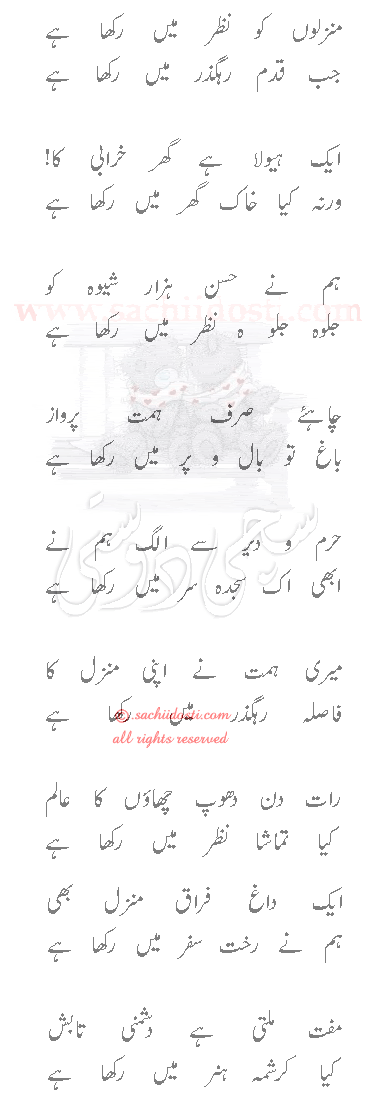 منزلوں کو نظر میں رکھا ہے
جب قدم رہگذر میں رکھا ہے
ایک ہیولا ہے گھر خرابی کا!
ورنہ کیا خاک گھر میں رکھا ہے
ہم نے حسن ہزار شیوہ کو
www.sachiidosti.com
جلوہ جلو ہ نظر میں رکھا ہے
چاہئے صرف ہمت پرواز
باغ تو بال و پر میں رکھا ہے
سچی دوستی
حرم و دیر سے الگ ہم نے
ابھی اک سجدہ سر میں رکھا ہے
میری ہمت نے اپنی منزل کا
فاصلہ رہگذر میں رکھا ہے
©.sachiidosti.com
all rights reserved
رات دن دھوپ چھاؤں کا عالم
کیا تماشا نظر میں رکھا ہے
ایک داغ فراق منزل بھی
ہم نے رخت سفر میں رکھا ہے
مفت ملتی ہے دشمنی تابش
کیا کرشمہ ہنر میں رکھا ہے